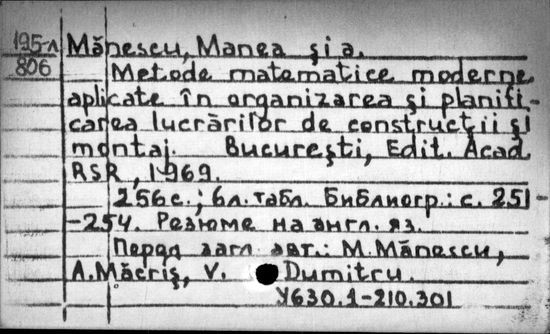 195-л Mănescu, Manea şi a.
806 Metode matematice moderne
aplicate în organizarea şi planifi-
carea lucrărilor de construcţii şi
montaj. Bucureşti, Edit. Acad.
RSR, 1969.
256 с.; 6 л. табл. Библиогр.: с. 251-
-254. Резюме на англ. яз.
Перед загл. авт.: M. Mănescu,
A. Măcriş, V. Dumitru.
У630.1-210.301